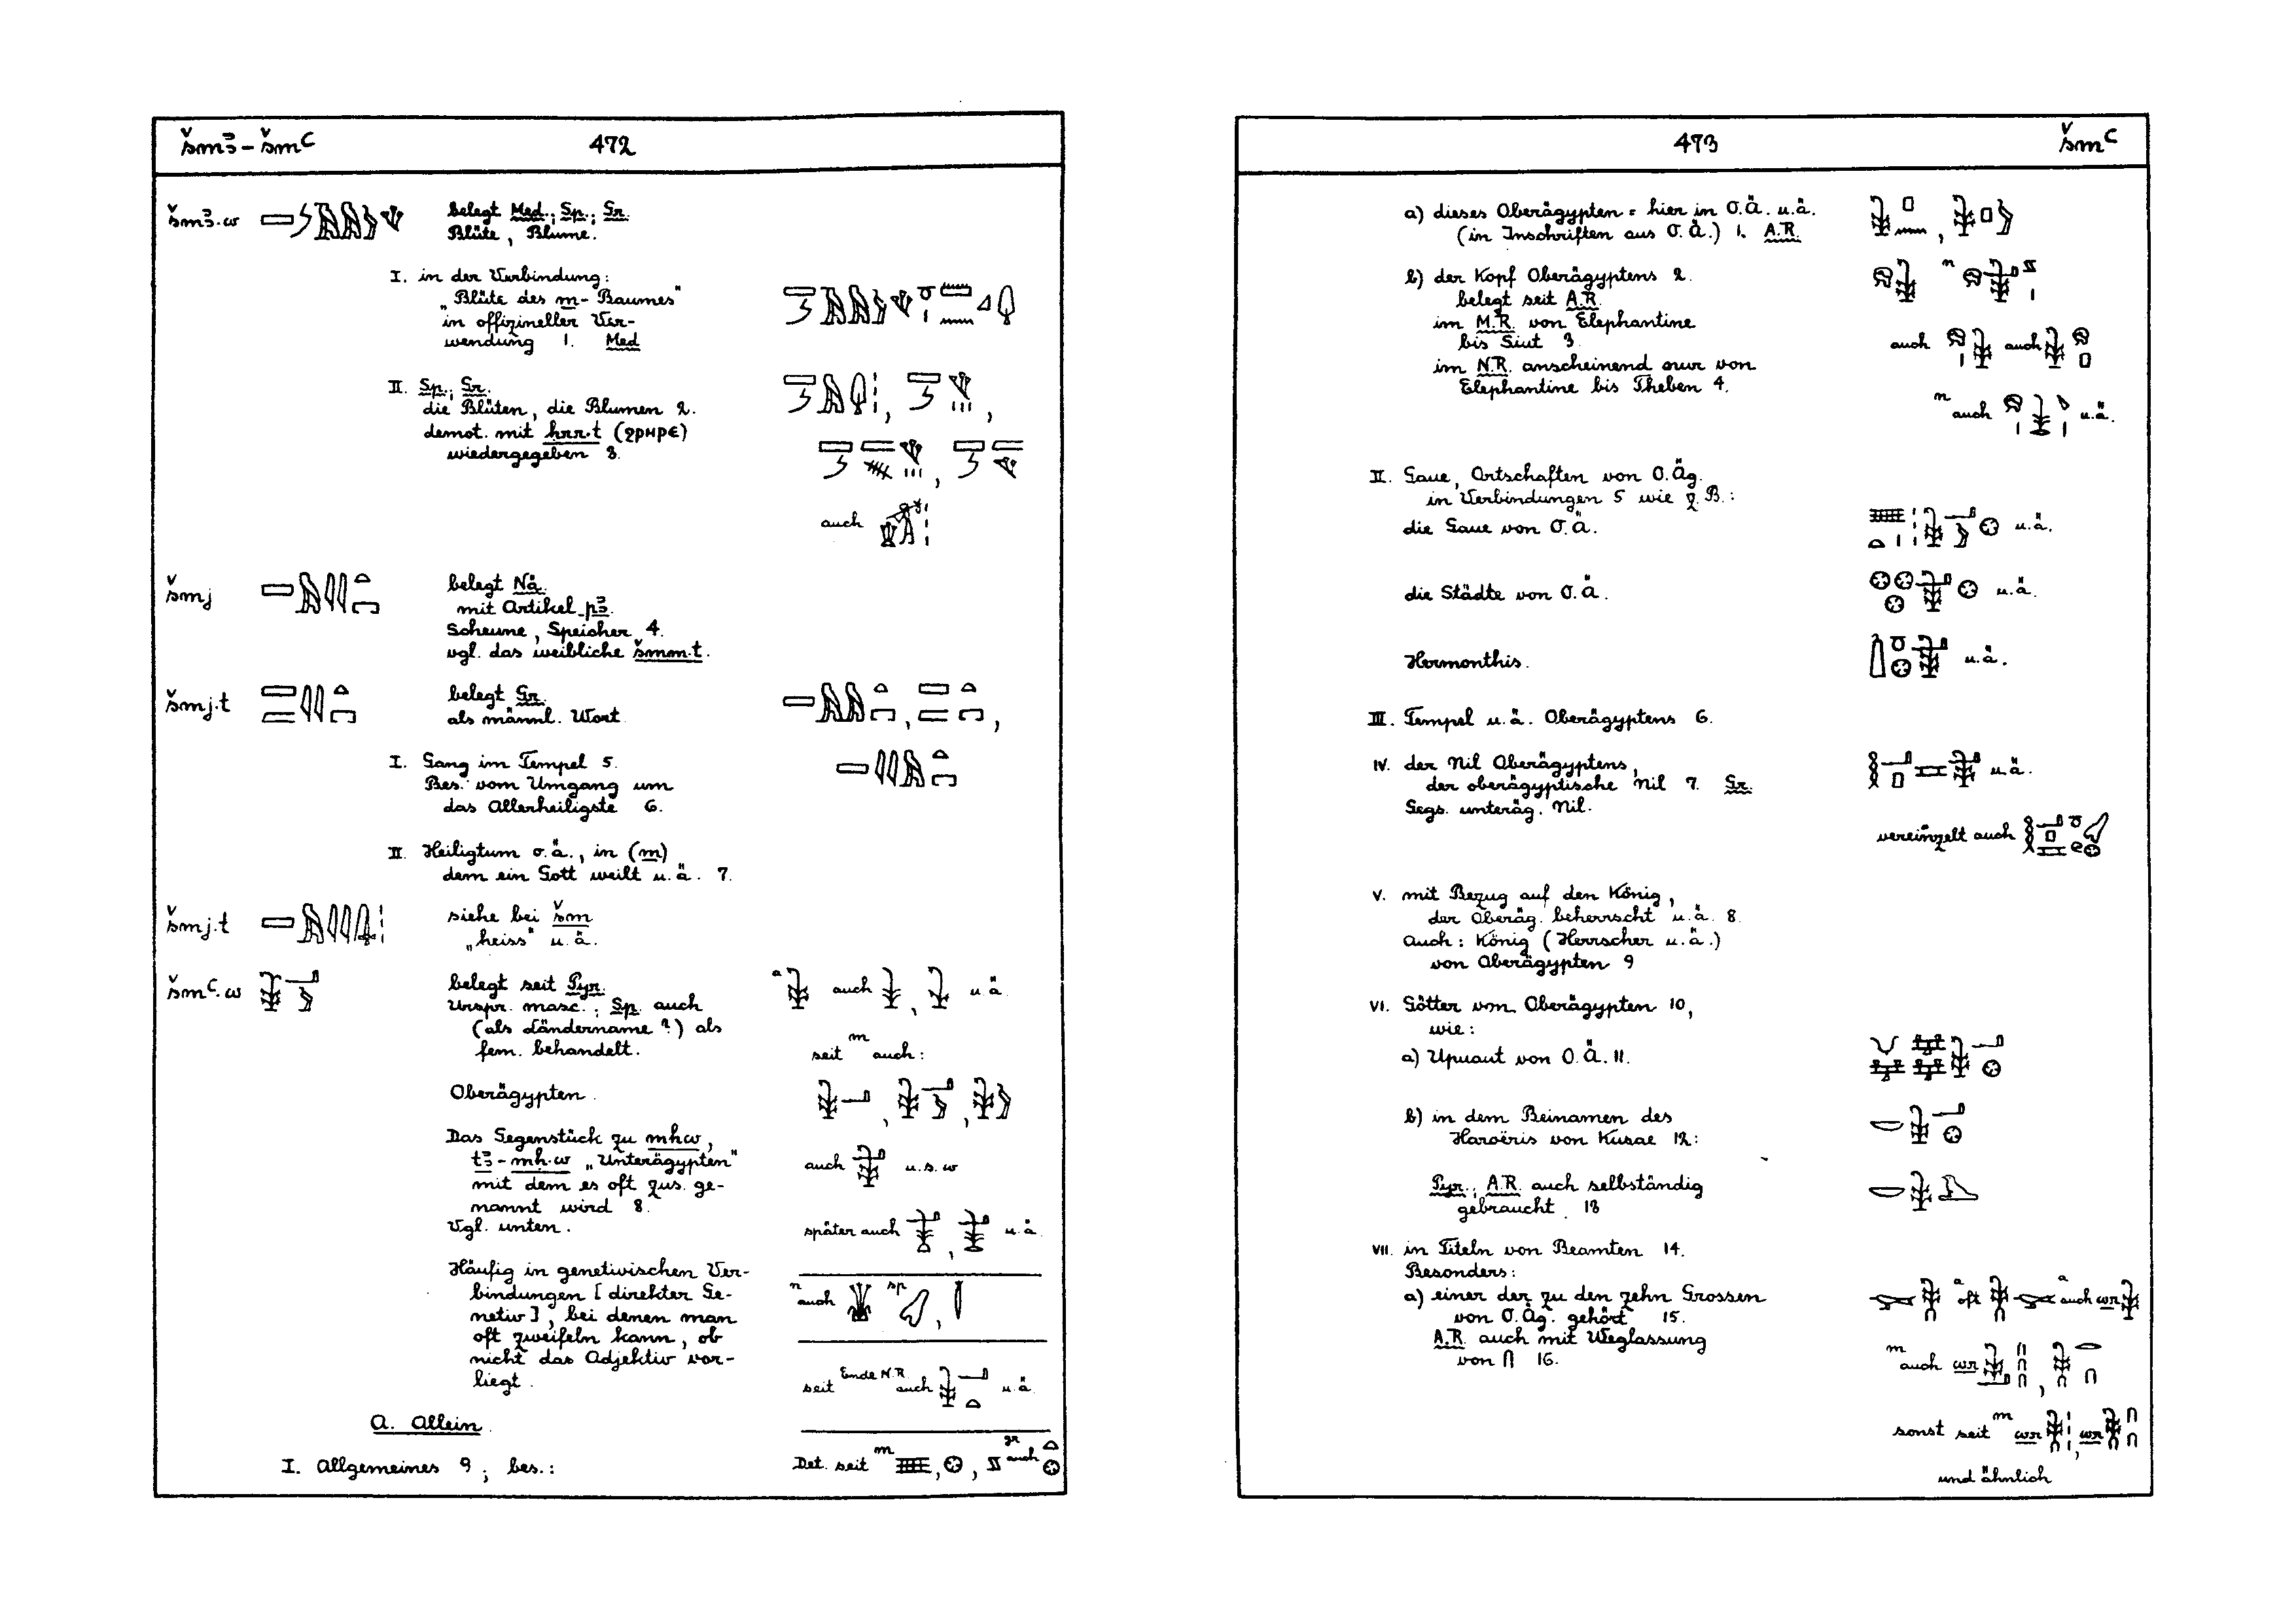 šmꜣ – šmꜥ 472
šmꜣ.w belegt Med.; Sp.; Gr.
Blüte, Blume.
I. in der Verbindung:
„Blüte des m-Baumes“
in offizineller Ver-
wendung 1. Med
II. Sp.; Gr.
die Blüten, die Blumen 2.
demot. mit ḥrr.t (ϩⲣⲏⲣⲉ)
wiedergegeben 3.
auch
šmj belegt Nä.
mit Artikel pꜣ.
Scheune, Speicher 4.
vgl. das weibliche šmm.t.
šmj.t belegt Gr.
als männl. Wort.
I. Gang im Tempel 5.
Bes. vom Umgang um
das Allerheiligste 6.
II. Heiligtum o.ä., in (m)
dem ein Gott weilt u.ä. 7.
šmj.t siehe bei šm
„heiss“ u.ä.
šmꜥ.w belegt seit Pyr.
Urspr. masc.; Sp. auch
(als Ländername?) als
fem. behandelt.
Oberägypten.
Das Gegenstück zu mḥw,
tꜣ-mḥ.w „Unterägypten“
mit dem es oft zus. ge-
nannt wird 8.
Vgl. unten.
Häufig in genetivischen Ver-
bindungen [direkter Ge-
netiv], bei denen man
oft zweifeln kann, ob
nicht das Adjektiv vor-
liegt.
a auch , u.ä.
seit m auch:
, ,
auch u.s.w
später auch , u.ä.
n auch sp ,
seit Ende N.R. auch u.ä.
A. Allein.
I. Allgemeines 9; bes.:
Det. seit m , , gr auch
473 šmꜥ
a) dieses Oberägypten = hier in O.Ä. u.ä.
(in Inschriften aus O.Ä.) 1. A.R.
b) der Kopf Oberägyptens 2.
belegt seit A.R.
im M.R. von Elephantine
bis Siut 3.
im N.R. anscheinend nur von
Elephantine bis Theben 4.
n
auch auch
n auch u.ä.
II. Gaue, Ortschaften von O.Äg.
in Verbindungen 5 wie z.B.:
die Gaue von O.Ä. u.ä.
die Städte von O.Ä. u.ä.
Hermonthis. u.ä.
III. Tempel u.ä. Oberägyptens 6.
IV. der Nil Oberägyptens, u.ä.
der oberägyptische Nil 7. Gr.
Gegs. unteräg. Nil.
vereinzelt auch
V. mit Bezug auf den König,
der Oberäg. beherrscht u.ä. 8.
Auch: König (Herrscher u.ä.)
von Oberägypten 9
VI. Götter von Oberägypten 10,
wie:
a) Upuaut von O.Ä. 11.
b) in dem Beinamen des
Haroëris von Kusae 12:
Pyr.; A.R. auch selbständig
gebraucht. 13
VII. in Titeln von Beamten 14.
Besonders:
a) einer der zu den zehn Grossen
von O.Äg. gehört 15.
A.R. auch mit Weglassung
von 16.
a oft a auch wr
m auch wr ,
sonst seit m wr , wr
und ähnlich